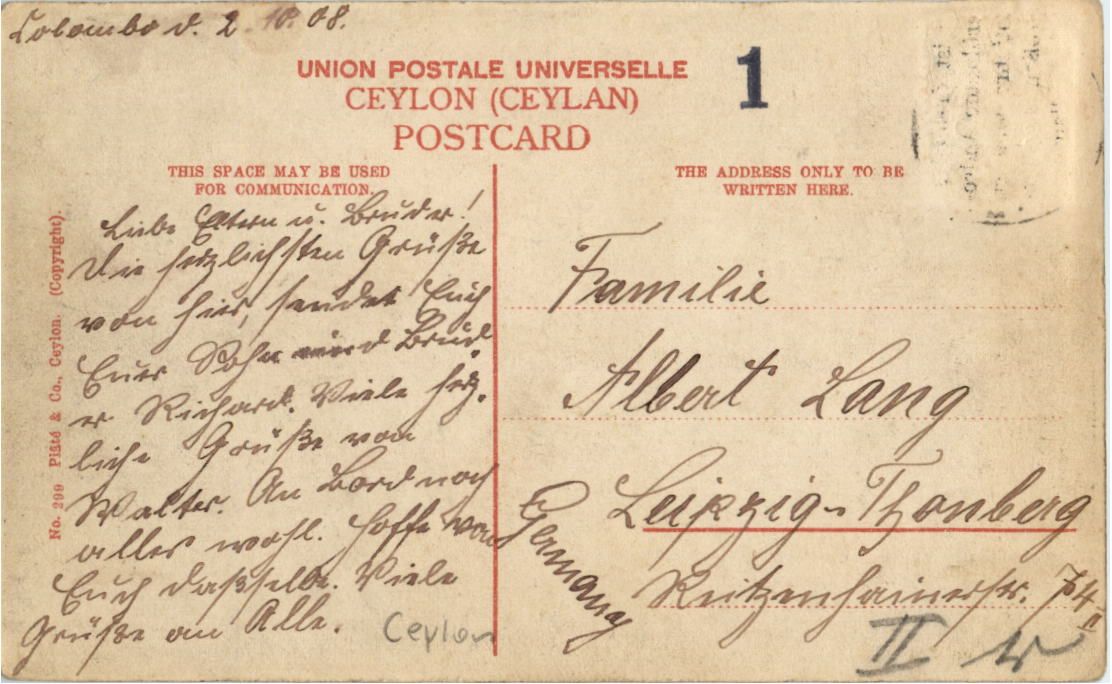 Colombo d. 2.10.08.
UNION POSTALE UNIVERSELLE
CEYLON (CEYLAN)
POSTCARD
1
THIS SPACE MAY BE USED
FOR COMMUNICATION.
THE ADDRESS ONLY TO BE
WRITTEN HERE.
No. 299 Plâté & Co., Ceylon. (Copyright).
Liebe Eltern u. Bruder!
Die herzlichsten Grüße
von hier, sendet Euch
Euer Sohn und Brud
er Richard. Viele herz-
liche Grüße von
Walter. An Bord noch
alles wohl. Hoffe von
Euch daßselbe. Viele
Grüße an Alle.
Ceylon
Familie
Albert Lang
Leipzig-Thonberg
Reitzenhainerstr. 74
Germany
II